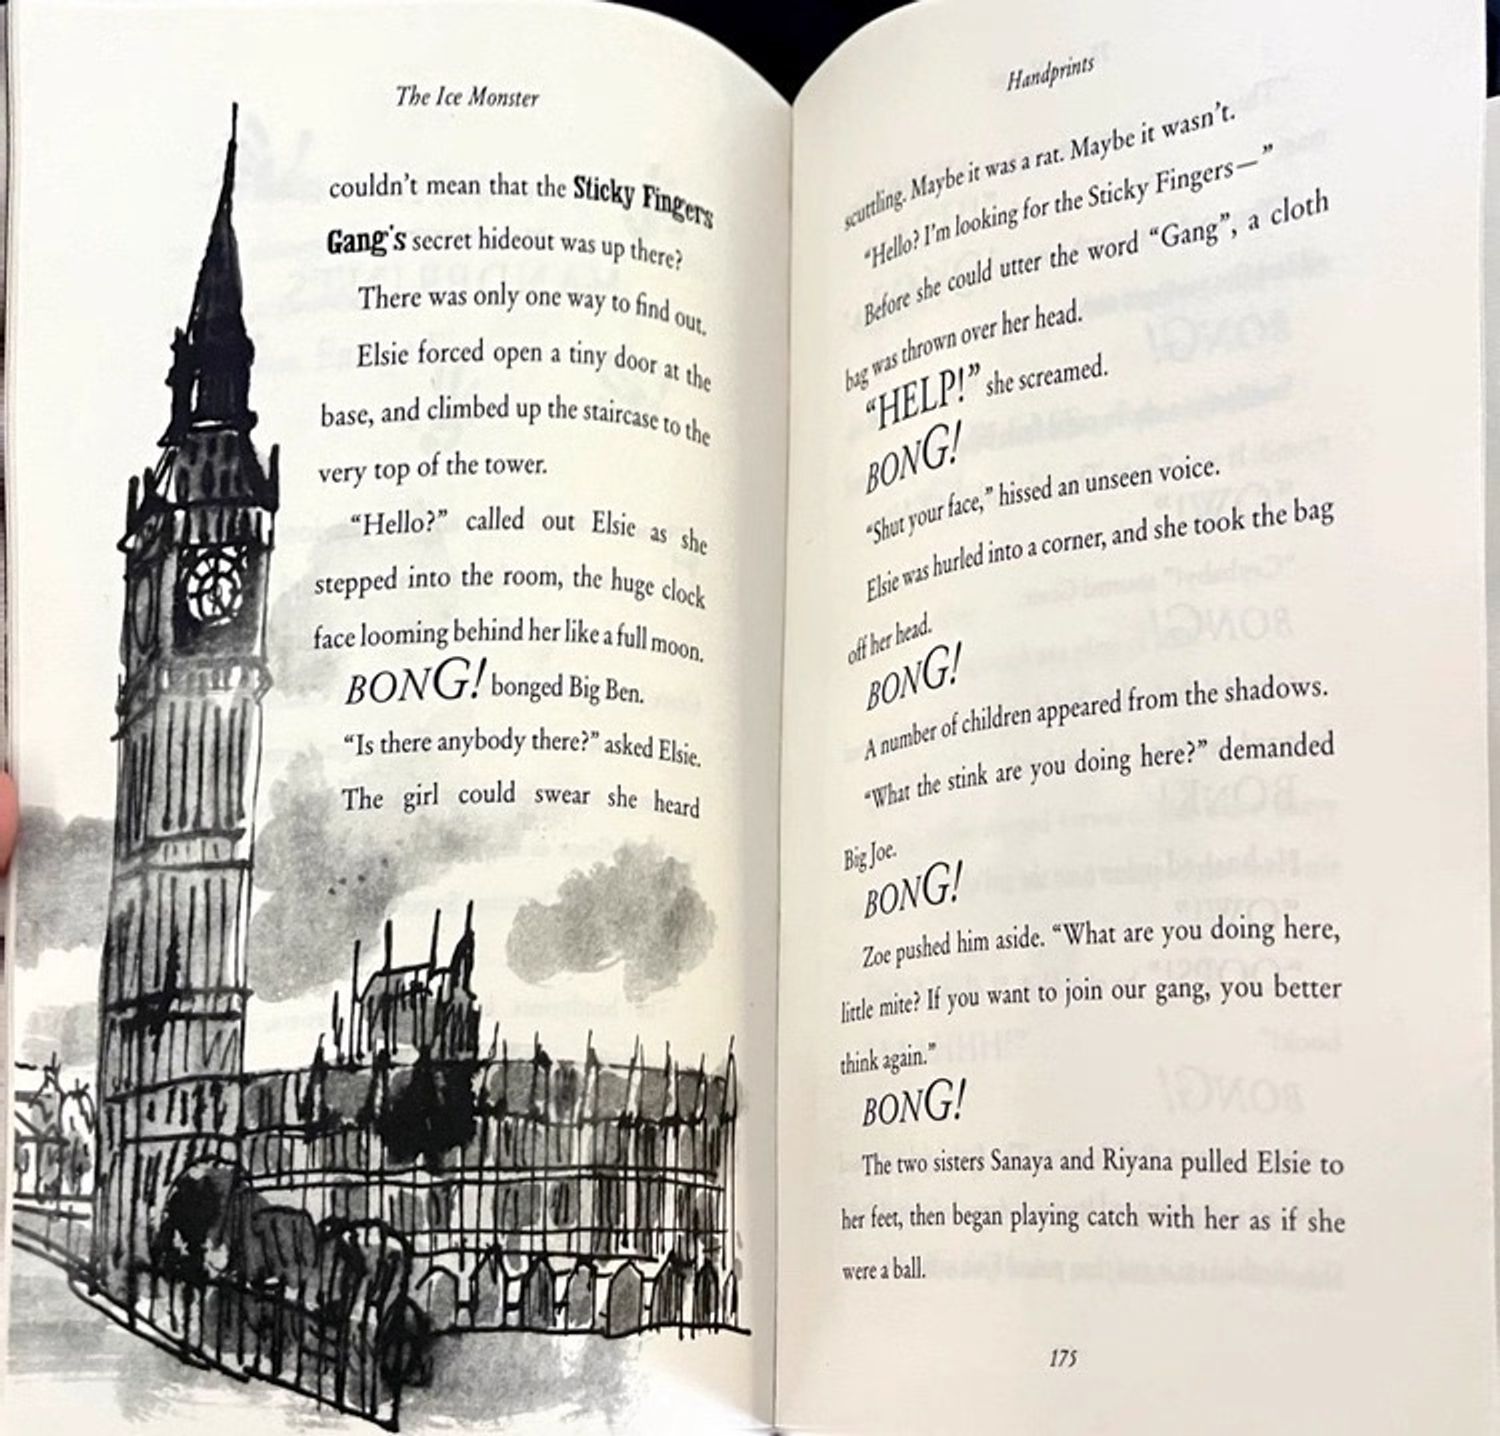 The Ice Monster
couldn't mean that the Sticky Fingers
Gang's secret hideout was up there?
There was only one way to find out.
Elsie forced open a tiny door at the
base, and climbed up the staircase to the
very top of the tower.
“Hello?” called out Elsie as she
stepped into the room, the huge clock
face looming behind her like a full moon.
BONG! bonged Big Ben.
“Is there anybody there?” asked Elsie.
The girl could swear she heard
Handprints
scuttling. Maybe it was a rat. Maybe it wasn't.
“Hello? I'm looking for the Sticky Fingers—”
Before she could utter the word “Gang”, a cloth
bag was thrown over her head.
“HELP!” she screamed.
BONG!
“Shut your face,” hissed an unseen voice.
Elsie was hurled into a corner, and she took the bag
off her head.
BONG!
A number of children appeared from the shadows.
“What the stink are you doing here?” demanded
Big Joe.
BONG!
Zoe pushed him aside. “What are you doing here,
little mite? If you want to join our gang, you better
think again.”
BONG!
The two sisters Sanaya and Riyana pulled Elsie to
her feet, then began playing catch with her as if she
were a ball.
175